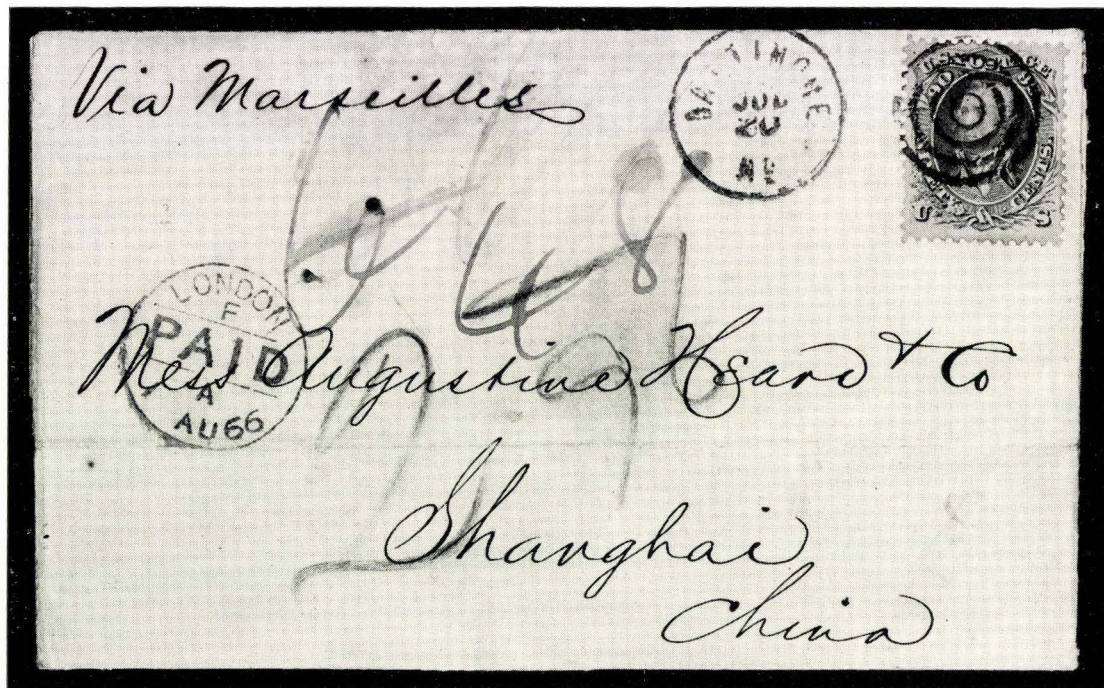 Via Marseilles
BALTIMORE
JUL
MD
U.S. POSTAGE
NINETY CENTS
U S
LONDON
F
PAID
A
AU 66
48
Mess Augustine Heard & Co
Shanghai
China